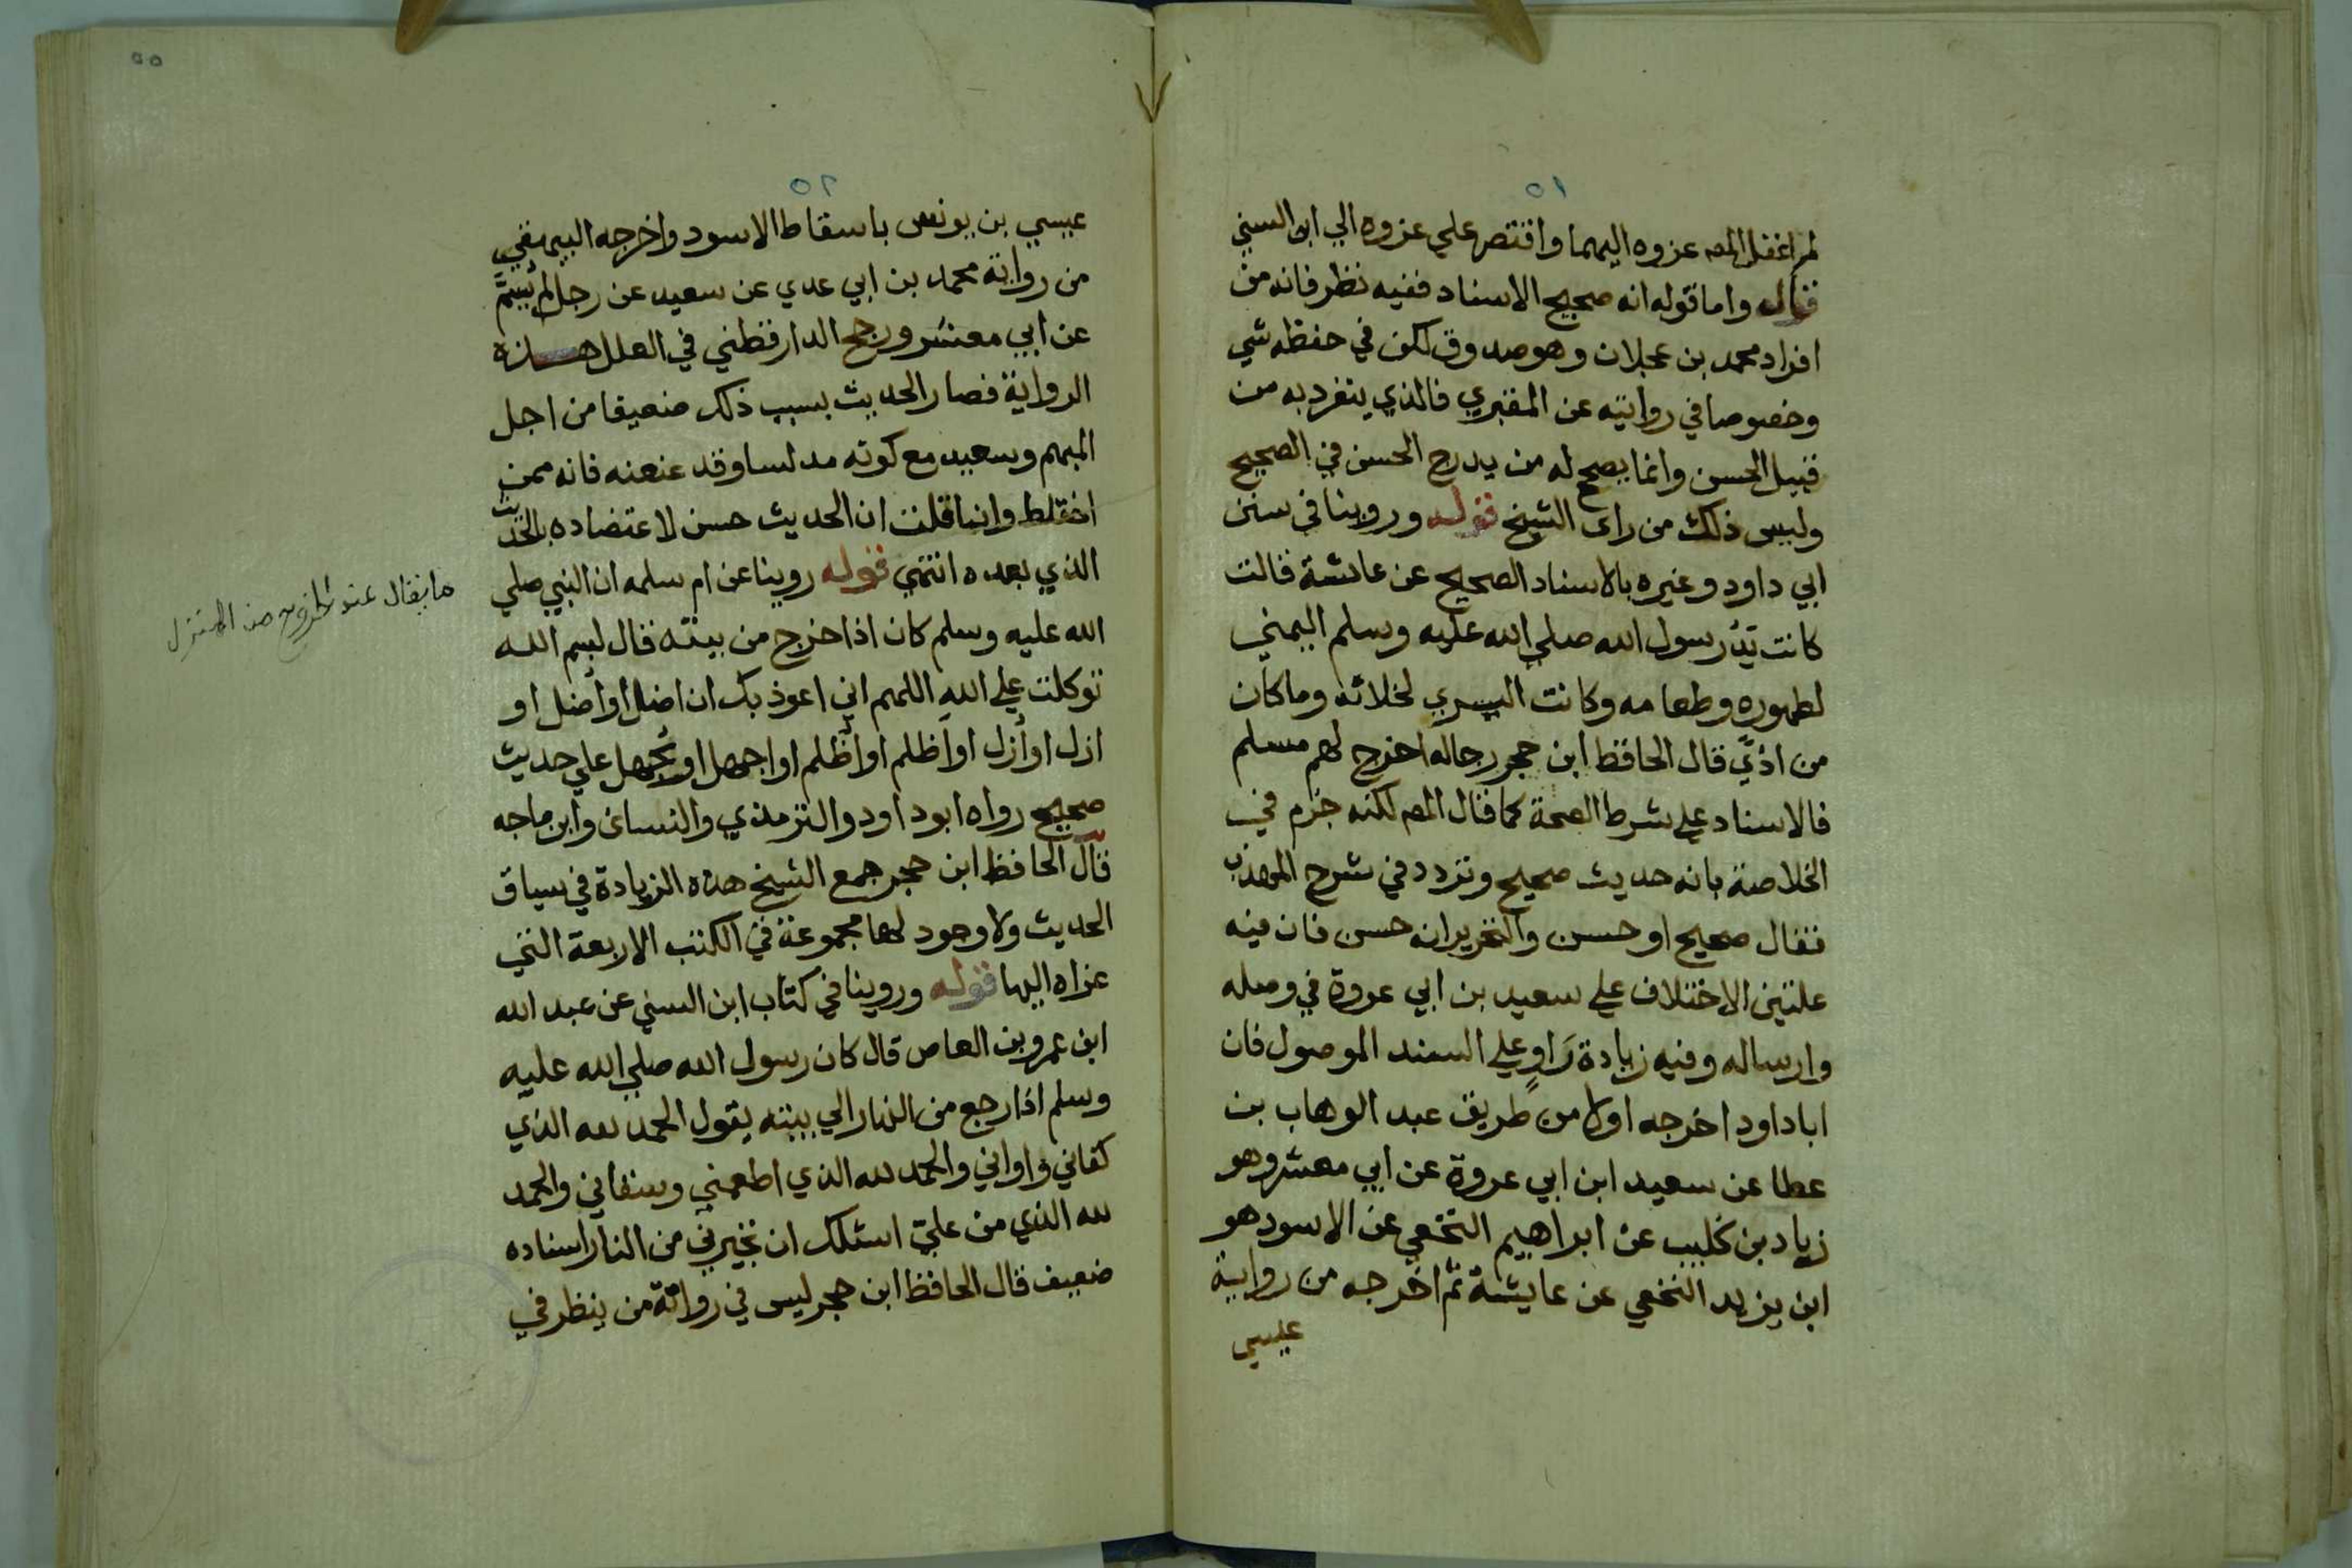 ٥١
لم اغفل المص عزوه اليهما واقتصر علي عزوه الي ابن السني
قال واما قوله انه صحيح الاسناد ففيه نظر فانه من
افراد محمد بن عجلان وهو صدوق لكن في حفظه شي
وخصوصا في روايته عن المقبري فالذي ينفرد به من
قبيل الحسن وانما يصحح له من يدرج الحسن في الصحيح
وليس ذلك من راى الشيخ قوله وروينا في سنن
ابي داود وغيره بالاسناد الصحيح عن عائشة قالت
كانت يَدُ رسول الله صلي الله عليه وسلم اليمني
لطهوره وطعامه وكانت اليسري لخلائه وما كان
من اذًي قال الحافظ ابن حجر رجاله اخرج لهم مسلم
فالاسناد علي شرط الصحة كما قال المص لكنه جزم في
الخلاصة بانه حديث صحيح وتردد في شرح المهذب
فقال صحيح او حسن والتحرير انه حسن فان فيه
علتين الاختلاف علي سعيد بن ابي عروة في وصله
وارساله وفيه زيادة رَاوٍ علي السند الموصول فان
اباداود اخرجه اولا من طريق عبد الوهاب بن
عطا عن سعيد ابن ابي عروة عن ابي معشر وهو
زياد بن كليب عن ابراهيم النخعي عن الاسود هو
ابن يزيد النخعي عن عايشة ثم اخرجه من رواية
عيسي
٥٥
٥٢
عيسي بن يونس باسقاط الاسود واخرجه البيهقي
من رواية محمد بن ابي عدي عن سعيد عن رجل لم يُسَمَّ
عن ابي معشر ورجح الدارقطني في العلل هذه
الرواية فصار الحديث بسبب ذلك ضعيفا من اجل
المبهم وسعيد مع كونه مدلسا وقد عنعنه فانه ممن
اختلط وانما قلت ان الحديث حسن لاعتضاده بالحديث
الذي بعده انتهي قوله روينا عن ام سلمه ان النبي صلي
الله عليه وسلم كان اذا خرج من بيته قال بسم الله
توكلت علي الله اللهم اني اعوذ بك ان اضل او أضل او
ازل او أزل او اظلم او أظلم او اجهل او يُجهل علي حديث
صحيح رواه ابو داود والترمذي والنسائ وابن ماجه
قال الحافظ ابن حجر جمع الشيخ هذه الزيادة في سياق
الحديث ولا وجود لها مجموعة في الكتب الاربعة التي
عزاه اليها قوله وروينا في كتاب ابن السني عن عبد الله
ابن عمرو بن العاص قال كان رسول الله صلي الله عليه
وسلم اذا رجع من النهار الي بيته يقول الحمد لله الذي
كفاني واواني والحمد لله الذي اطعمني وسقاني والحمد
لله الذي من عليّ اسئلك ان تجيرني من النار اسناده
ضعيف قال الحافظ ابن حجر ليس في رواته من ينظر في
ما يقال عند الخروج من المنزل